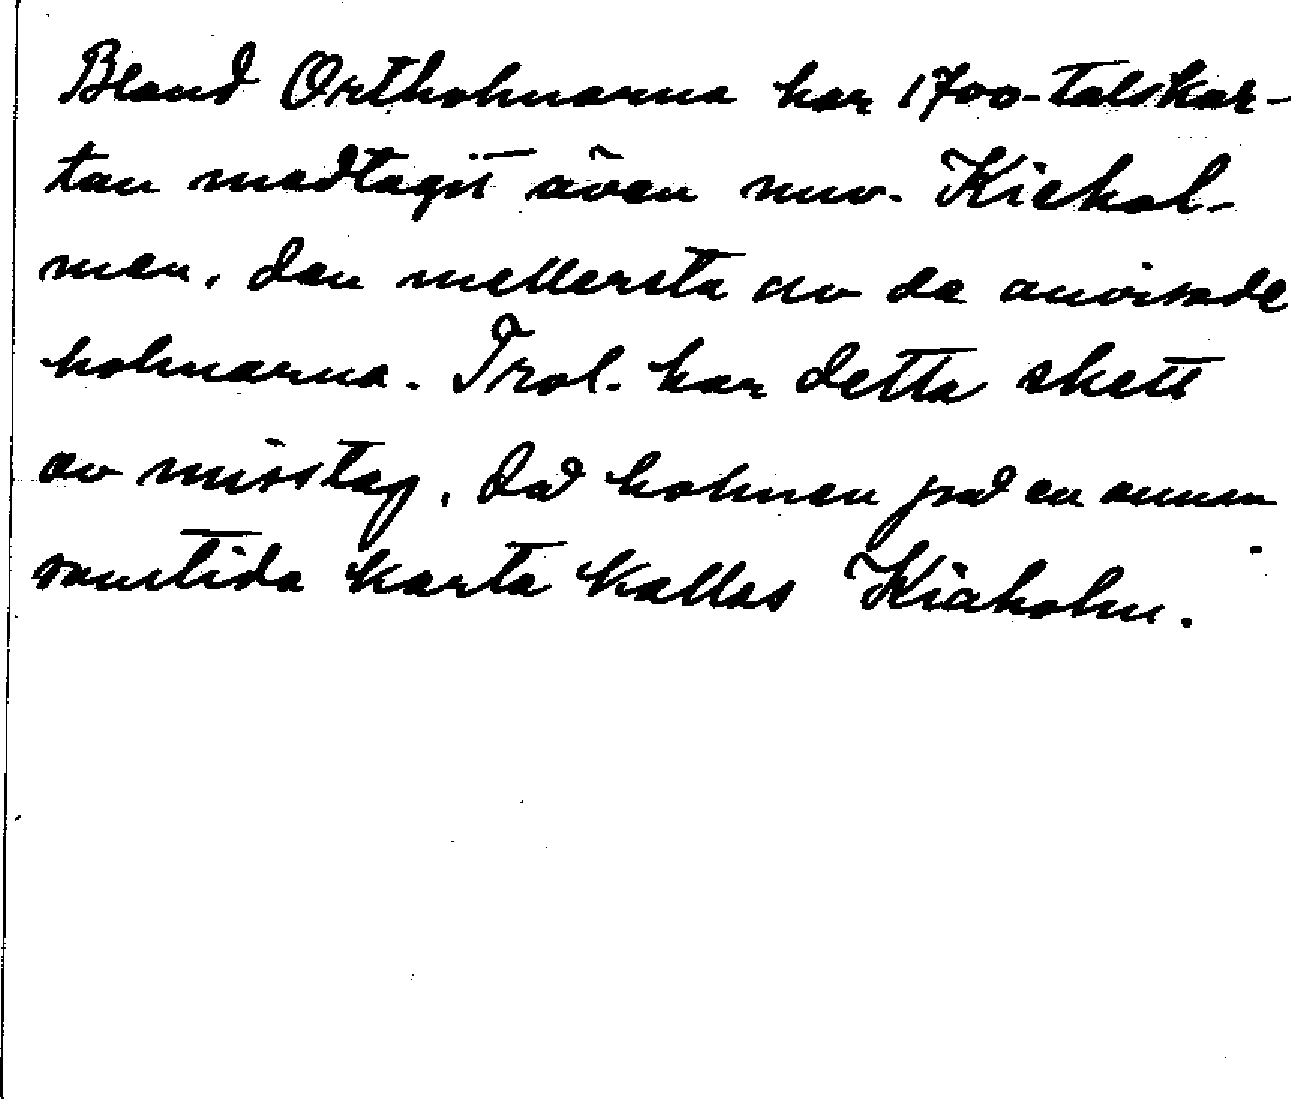 Bland Ortholmarna har 1700-talskar-
tan medtagit även nuv. Kiehol-
men, den mellersta av de anvisade
holmarna. Trol. har detta skett
av misstag, då holmen på en annan
samtida karta kallas Kiaholm.